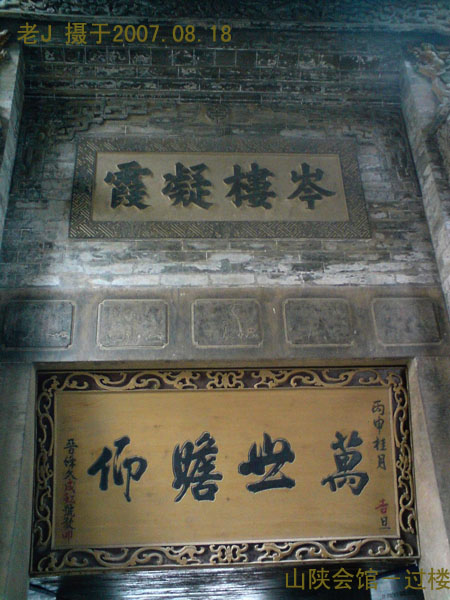 老J 摄于2007.08.18
岑楼凝霞
萬世瞻仰
丙申桂月 吉旦
山陕会馆－过楼